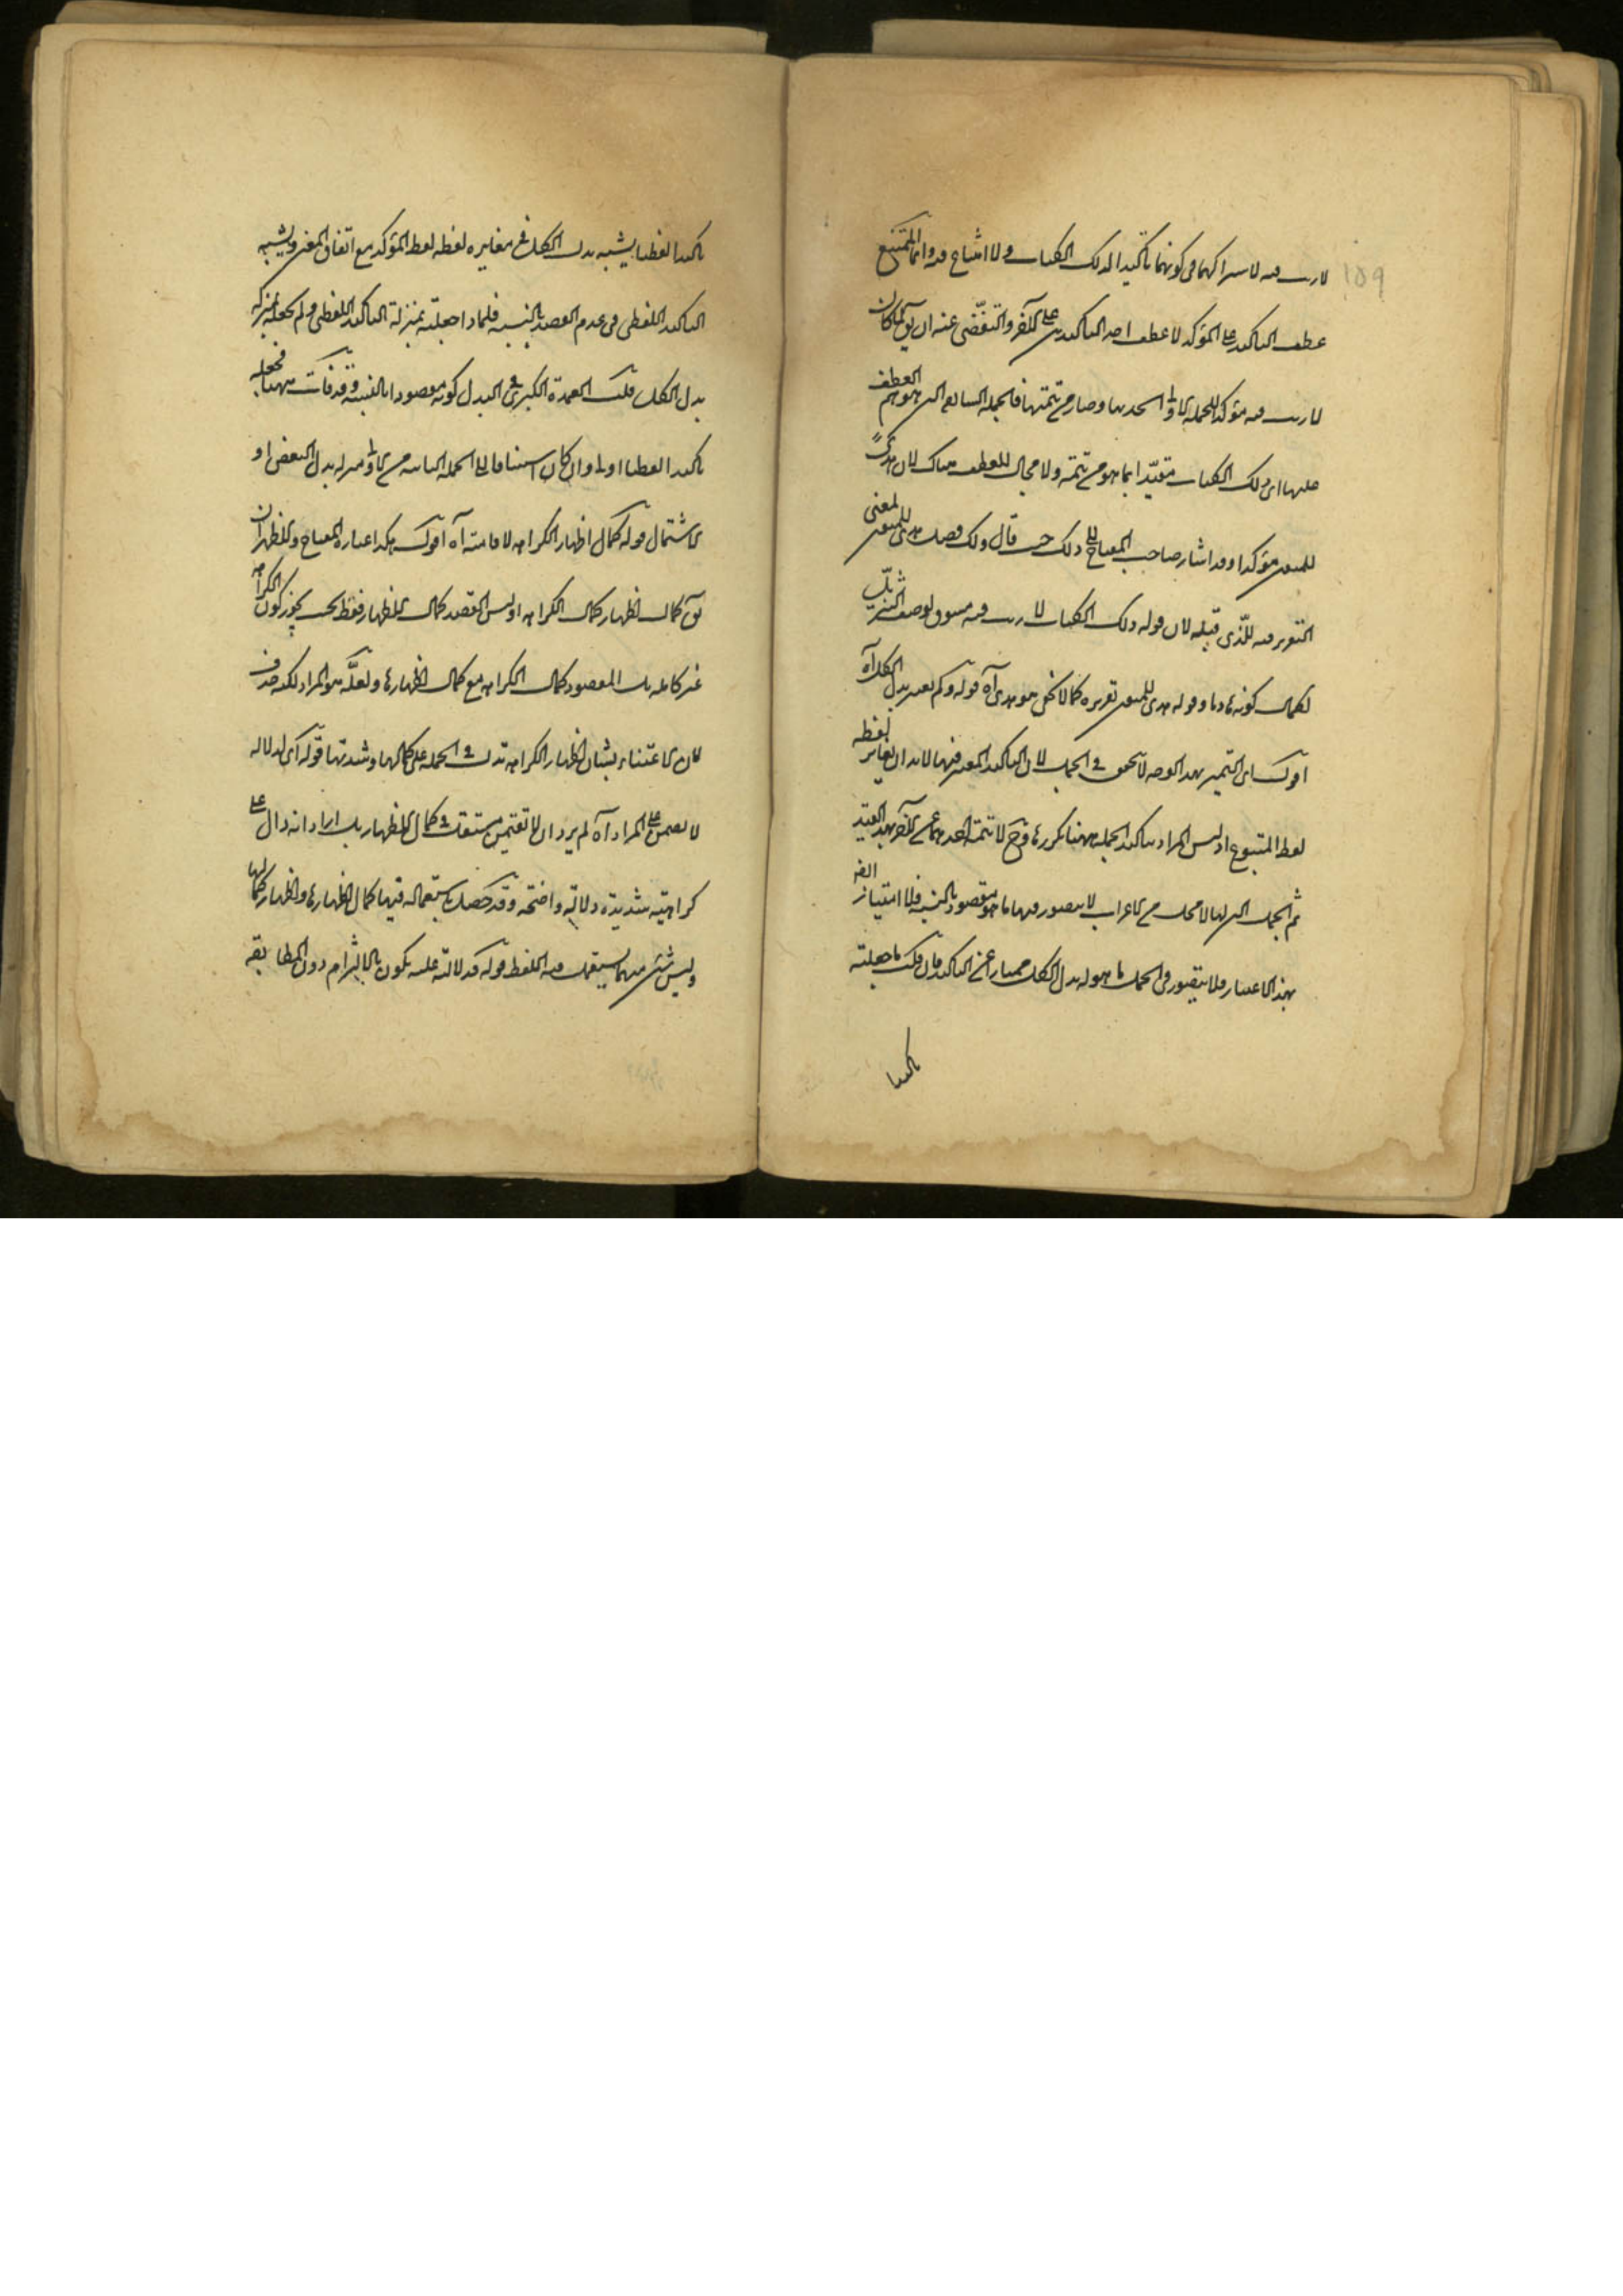 لا ريب فيه لاشتراكهما فى كونهما تأكيدا لذلك الكتاب ولا امتناع فيه وانما الممتنع
عطف التاكيد على المؤكد لا عطف احد التاكيدين على الآخر والتفصّى عنه ان يق لما كان
لا ريب فيه مؤكدا للجملة الاولى اتحد بها وصار من تتمتها فالجملة السابقة التى هو هم العطف
عليها اى ذلك الكتاب مقيّدا بما هو من تتمته ولا مجال للعطف هناك لان هدىً
للمتقين مؤكدا وقد اشار صاحب المفتاح الى ذلك حيث قال وكذلك فصل هدى للمتقين لمعنى
التقرير فيه للّذى قبله لان قوله ذلك الكتاب لا ريب فيه مسوق لوصف التنزيل
لكمال كونه هاديا وقوله هدى للمتقين تقريره كما لا يخفى هو هدى آه قوله ولم يعتبر بدل الكل آه
اقول اى التميز بهذا الوجه لا يتحقق فى الجمل لان التاكيد المعتبر فيها لا بد ان يغاير لفظه
لفظ المتبوع اذ ليس المراد بتاكيد الجملة ههنا تكررها وح لا يتميز احدهما عن الآخر بهذا القيد
ثم الجمل التى لها لا محل من الاعراب لا يتصور فيها ما هو مقصود بالنسبة فلا امتياز الفه
بهذا الاعتبار فلا يتصور فى الجمل ما هو له بدل الكل ممتازا عن التاكيد فان قلت ما جعلته
تاكيدا
تاكيدا لفظيا يشبه بدل الكل فى مغايرة لفظه لفظ المؤكد مع اتفاق المعنى ويشبه
التاكيد اللفظى فى عدم القصد بالنسبة فلماذا جعلته بمنزلة التاكيد اللفظى ولم تجعله بمنزلة
بدل الكل قلت العمدة الكبرى فى البدل كونه مقصودا بالنسبة وقد فات ههنا فجعله
تاكيدا لفظيا اولى وان كان استينافا للجملة الثانية من الاولى منزلة بدل البعض او
الاشتمال قوله كمال اظهار الكراهة لاقامته آه اقول هكذا عبارة المفتاح والاظهر ان
يق كمال اظهار كمال الكراهة اذ ليس القصد كمال الاظهار فقط بحيث يجوز كون الكراهة
غير كاملة بل المقصود كمال الكراهة مع كمال اظهارها ولعلّه هو المراد لكنه حذف
لان الاعتناء بشان اظهار الكراهة تدل فى الجملة على كمالها وشدتها قوله اى لدلالة
لا تقيمن على المراد آه لم يرد ان لا تقيمن مستعمل فى كمال الاظهار بل اراد انه دال على
كراهية شديدة دلالة واضحة وقد حصل باستعماله فيها كمال اظهارها واظهار كمالها
وليس شىء منهما يستعمل فيه اللفظ قوله فدلالته عليه يكون بالالتزام دون المطابقة